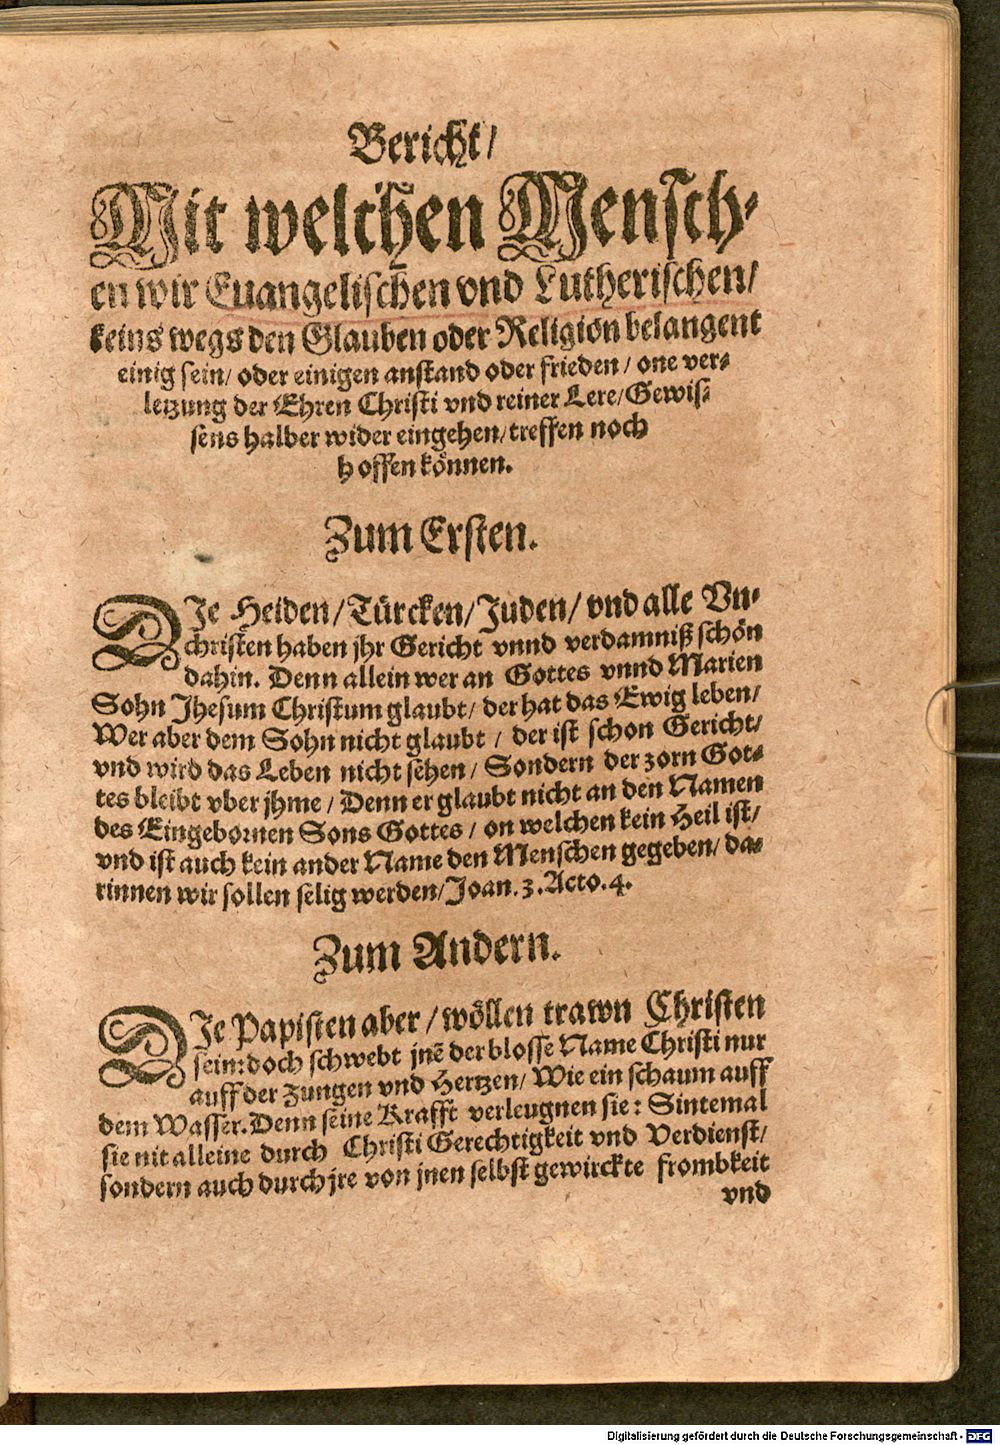 Bericht/
Mit welchen Mensch-
en wir Euangelischen vnd Lutherischen/
keins wegs den Glauben oder Religion belangent
einig sein/ oder einigen anstand oder frieden/ one ver-
letzung der Ehren Christi vnd reiner Lere/ Gewis-
sens halber wider eingehen/ treffen noch
hoffen können.
Zum Ersten.
DJe Heiden/ Türcken/ Juden/ vnd alle Vn-
christen haben jhr Gericht vnnd verdamniß schön
dahin. Denn allein wer an Gottes vnnd Marien
Sohn Jhesum Christum glaubt/ der hat das Ewig leben/
Wer aber dem Sohn nicht glaubt/ der ist schon Gericht/
vnd wird das Leben nicht sehen/ Sondern der zorn Got-
tes bleibt vber jhme/ Denn er glaubt nicht an den Namen
des Eingebornen Sons Gottes/ on welchen kein Heil ist/
vnd ist auch kein ander Name den Menschen gegeben/ da-
rinnen wir sollen selig werden/ Joan. 3. Acto. 4.
Zum Andern.
DJe Papisten aber/ wöllen trawn Christen
sein: doch schwebt jnē der blosse Name Christi nur
auff der Zungen vnd Hertzen/ Wie ein schaum auff
dem Wasser. Denn seine Krafft verleugnen sie: Sintemal
sie nit alleine durch Christi Gerechtigkeit vnd Verdienst/
sondern auch durch jre von jnen selbst gewirckte frombkeit
vnd
Digitalisierung gefördert durch die Deutsche Forschungsgemeinschaft - DFG